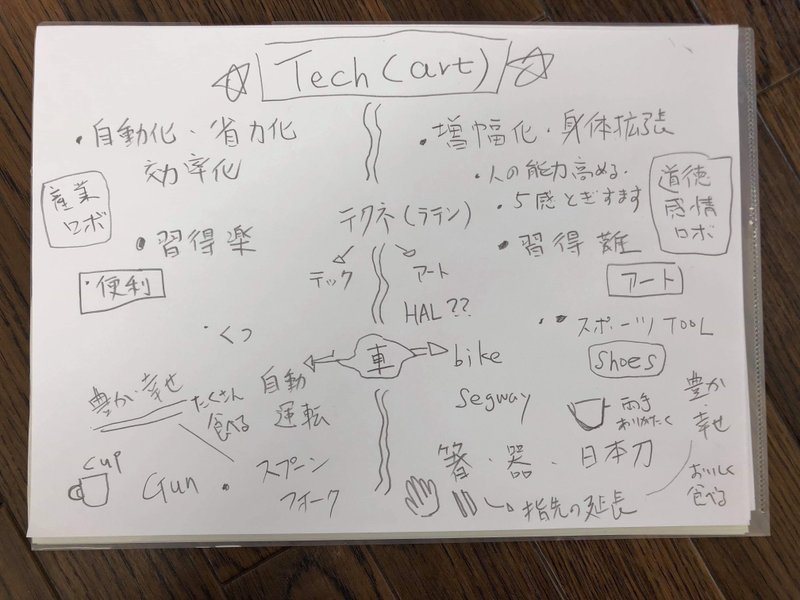 Tech (art)
・自動化・省力化
効率化
産業
ロボ
・習得楽
・便利
・くつ
豊か・幸せ
たくさん
食べる
自動
運転
cup
Gun
・スプーン
フォーク
テクネ(ラテン)
テック
アート
HAL??
車
・増幅化・身体拡張
・人の能力高める・
・5感とぎすます
道徳
感情
ロボ
・習得難
アート
・スポーツTOOL
bike
Shoes
Segway
両手
ありがたく
豊か
・幸せ
箸・器・日本刀
指先の延長
おいしく
食べる